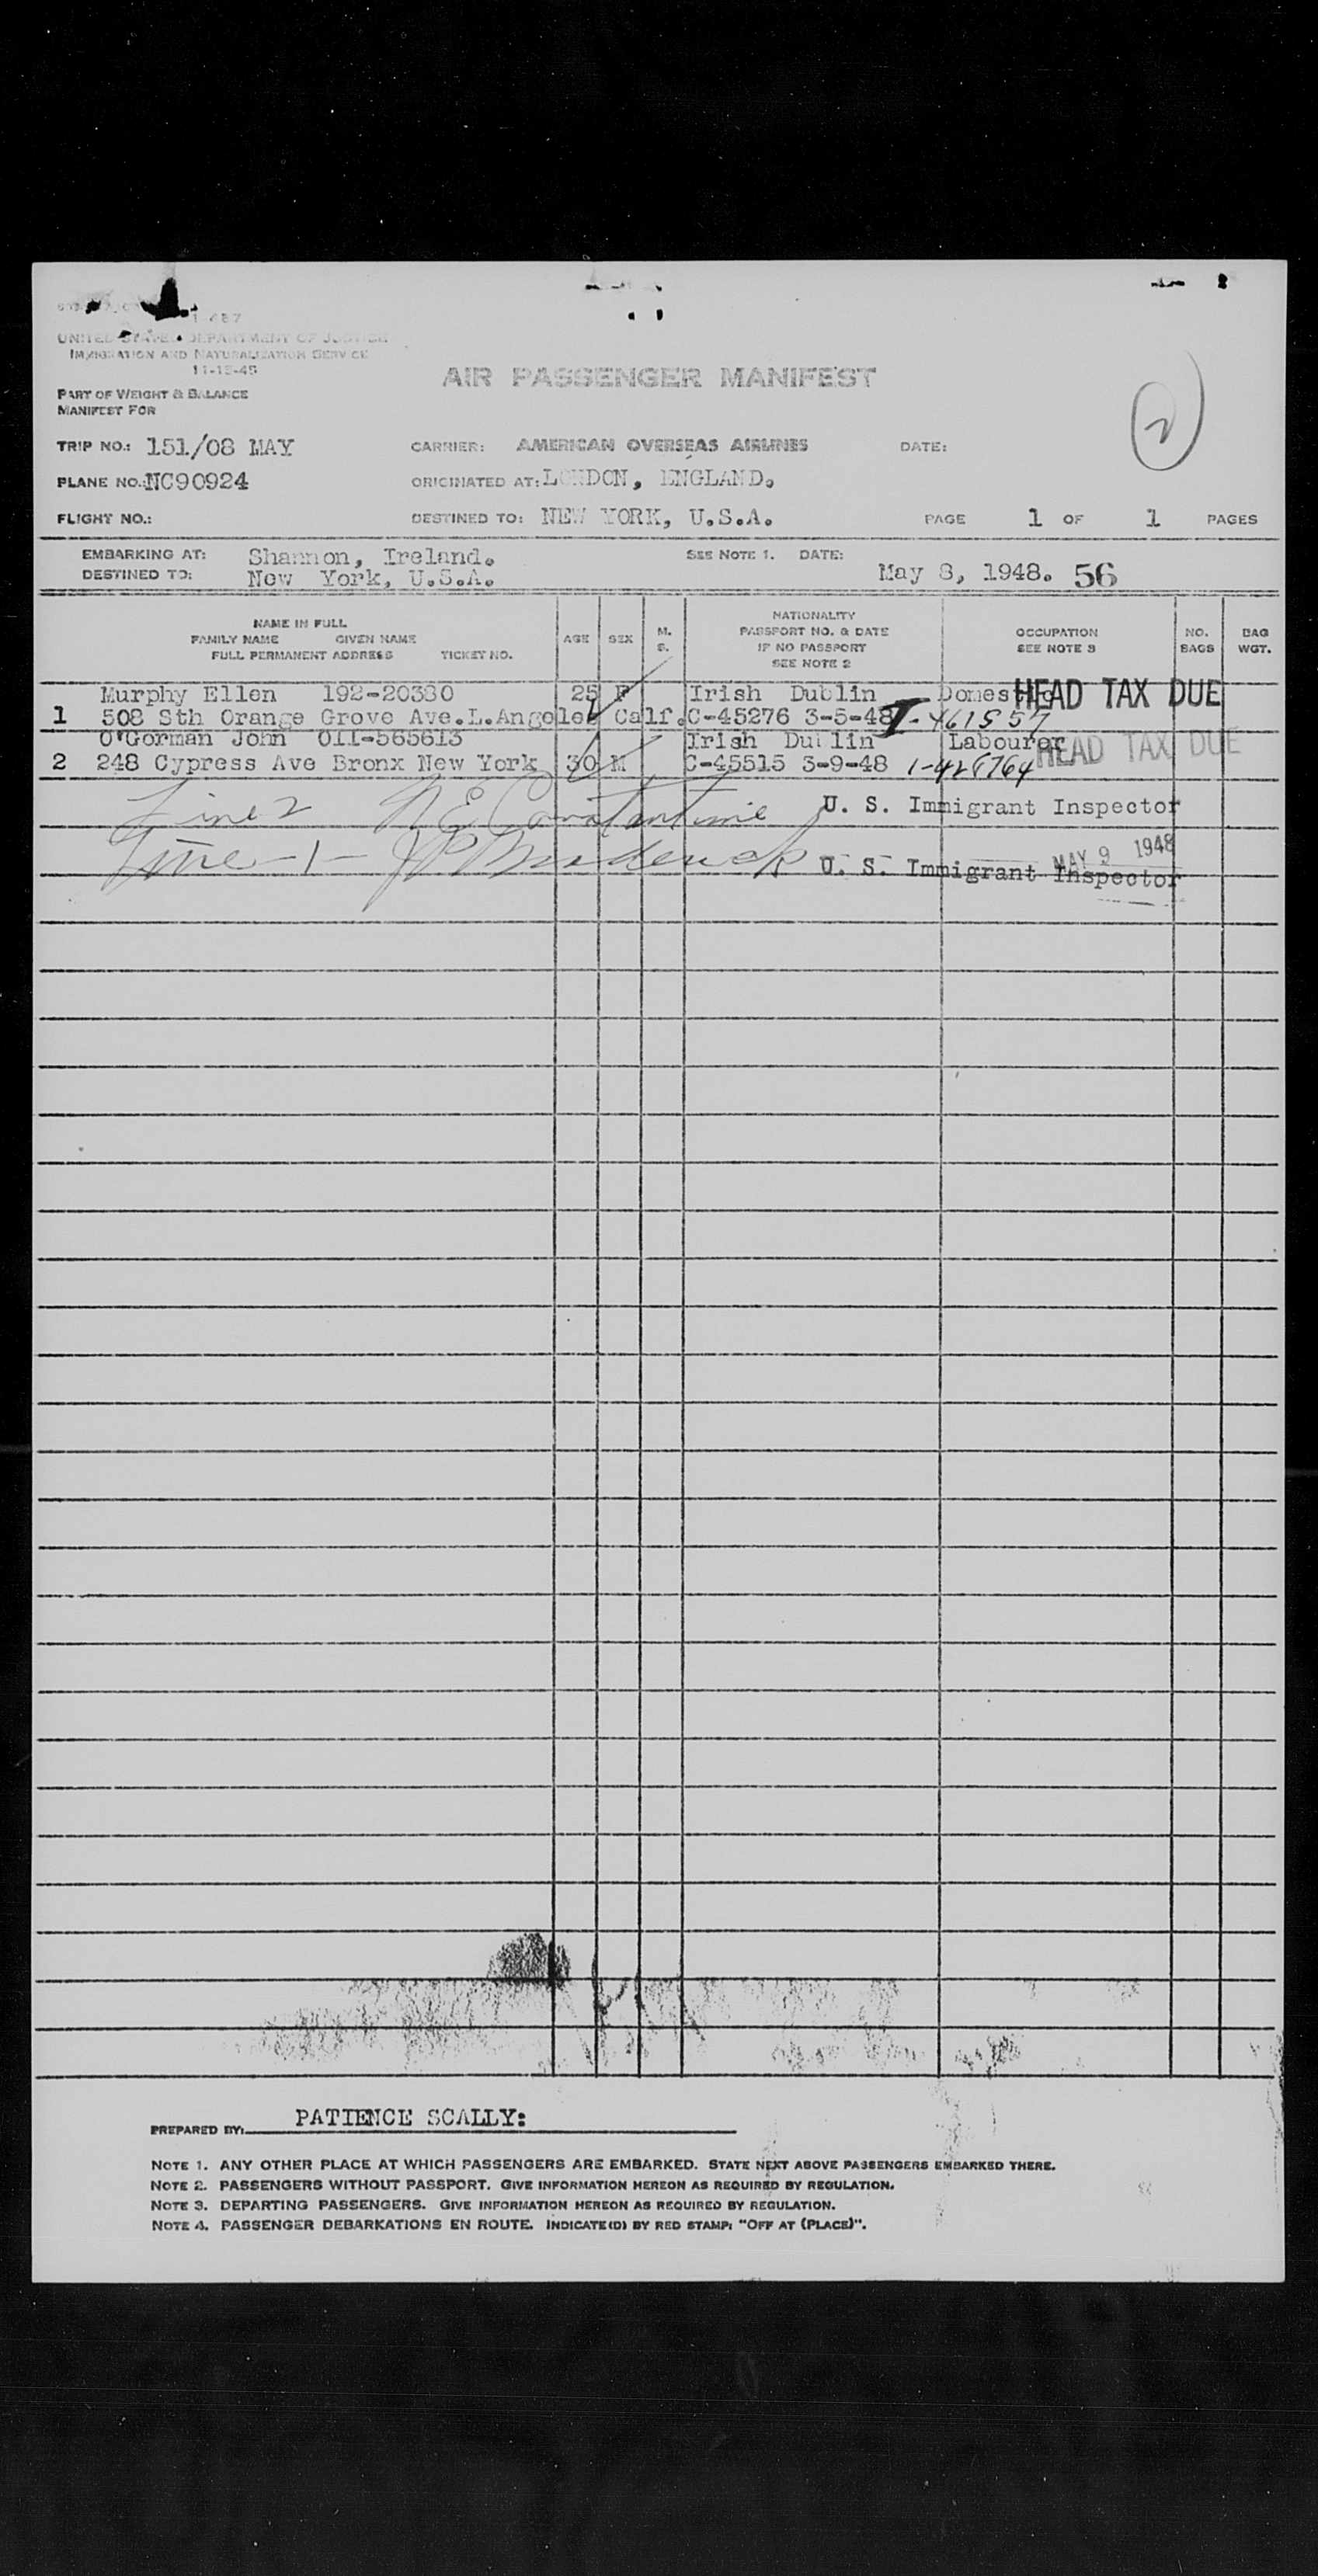 UNITED STATES DEPARTMENT OF JUSTICE
IMMIGRATION AND NATURALIZATION SERVICE
11-15-45
AIR PASSENGER MANIFEST
PART OF WEIGHT & BALANCE
MANIFEST FOR
2
TRIP NO.: 151/08 MAY CARRIER: AMERICAN OVERSEAS AIRLINES DATE:
PLANE NO.: NC90924 ORIGINATED AT: LONDON, ENGLAND.
FLIGHT NO.: DESTINED TO: NEW YORK, U.S.A. PAGE 1 OF 1 PAGES
EMBARKING AT: Shannon, Ireland. SEE NOTE 1. DATE:
DESTINED TO: New York, U.S.A. May 8, 1948. 56
NAME IN FULL
FAMILY NAME GIVEN NAME
FULL PERMANENT ADDRESS TICKET NO.
AGE SEX M. S.
NATIONALITY
PASSPORT NO. & DATE
IF NO PASSPORT
SEE NOTE 2
OCCUPATION
SEE NOTE 3
NO. BAGS
BAG WGT.
Murphy Ellen 192-20380 25 F Irish Dublin Domestic HEAD TAX DUE
1 508 Sth Orange Grove Ave.L.Angeles Calf. C-45276 3-5-48 I-461857
O'Gorman John 011-565613 Irish Dublin Labourer HEAD TAX DUE
2 248 Cypress Ave Bronx New York 30 M C-45515 3-9-48 1-426764
Line 2 U. S. Immigrant Inspector
Line -1- U. S. Immigrant Inspector
MAY 9 1948
PREPARED BY: PATIENCE SCALLY:
NOTE 1. ANY OTHER PLACE AT WHICH PASSENGERS ARE EMBARKED. STATE NEXT ABOVE PASSENGERS EMBARKED THERE.
NOTE 2. PASSENGERS WITHOUT PASSPORT. GIVE INFORMATION HEREON AS REQUIRED BY REGULATION.
NOTE 3. DEPARTING PASSENGERS. GIVE INFORMATION HEREON AS REQUIRED BY REGULATION.
NOTE 4. PASSENGER DEBARKATIONS EN ROUTE. INDICATE(D) BY RED STAMP: "OFF AT (PLACE)".